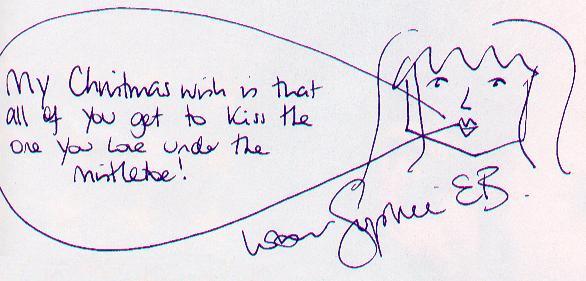 My Christmas wish is that
all of you get to kiss the
one you love under the
mistletoe!
Sophie EB.